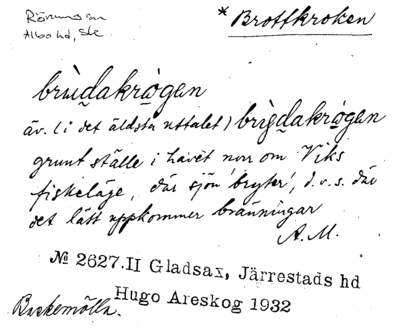 Rörums sn
Albo hd, Skе
* Brottkroken
brùdakrǫgen
äv. (i det äldsta uttalet) brìgdakrǫgen
grunt ställe i havet norr om Viks
fiskeläge, där sjön 'bryter', d.v.s. där
det lätt uppkommer bränningar
A. M.
№ 2627.II Gladsax, Järrestads hd
Hugo Areskog 1932
Backemölla.